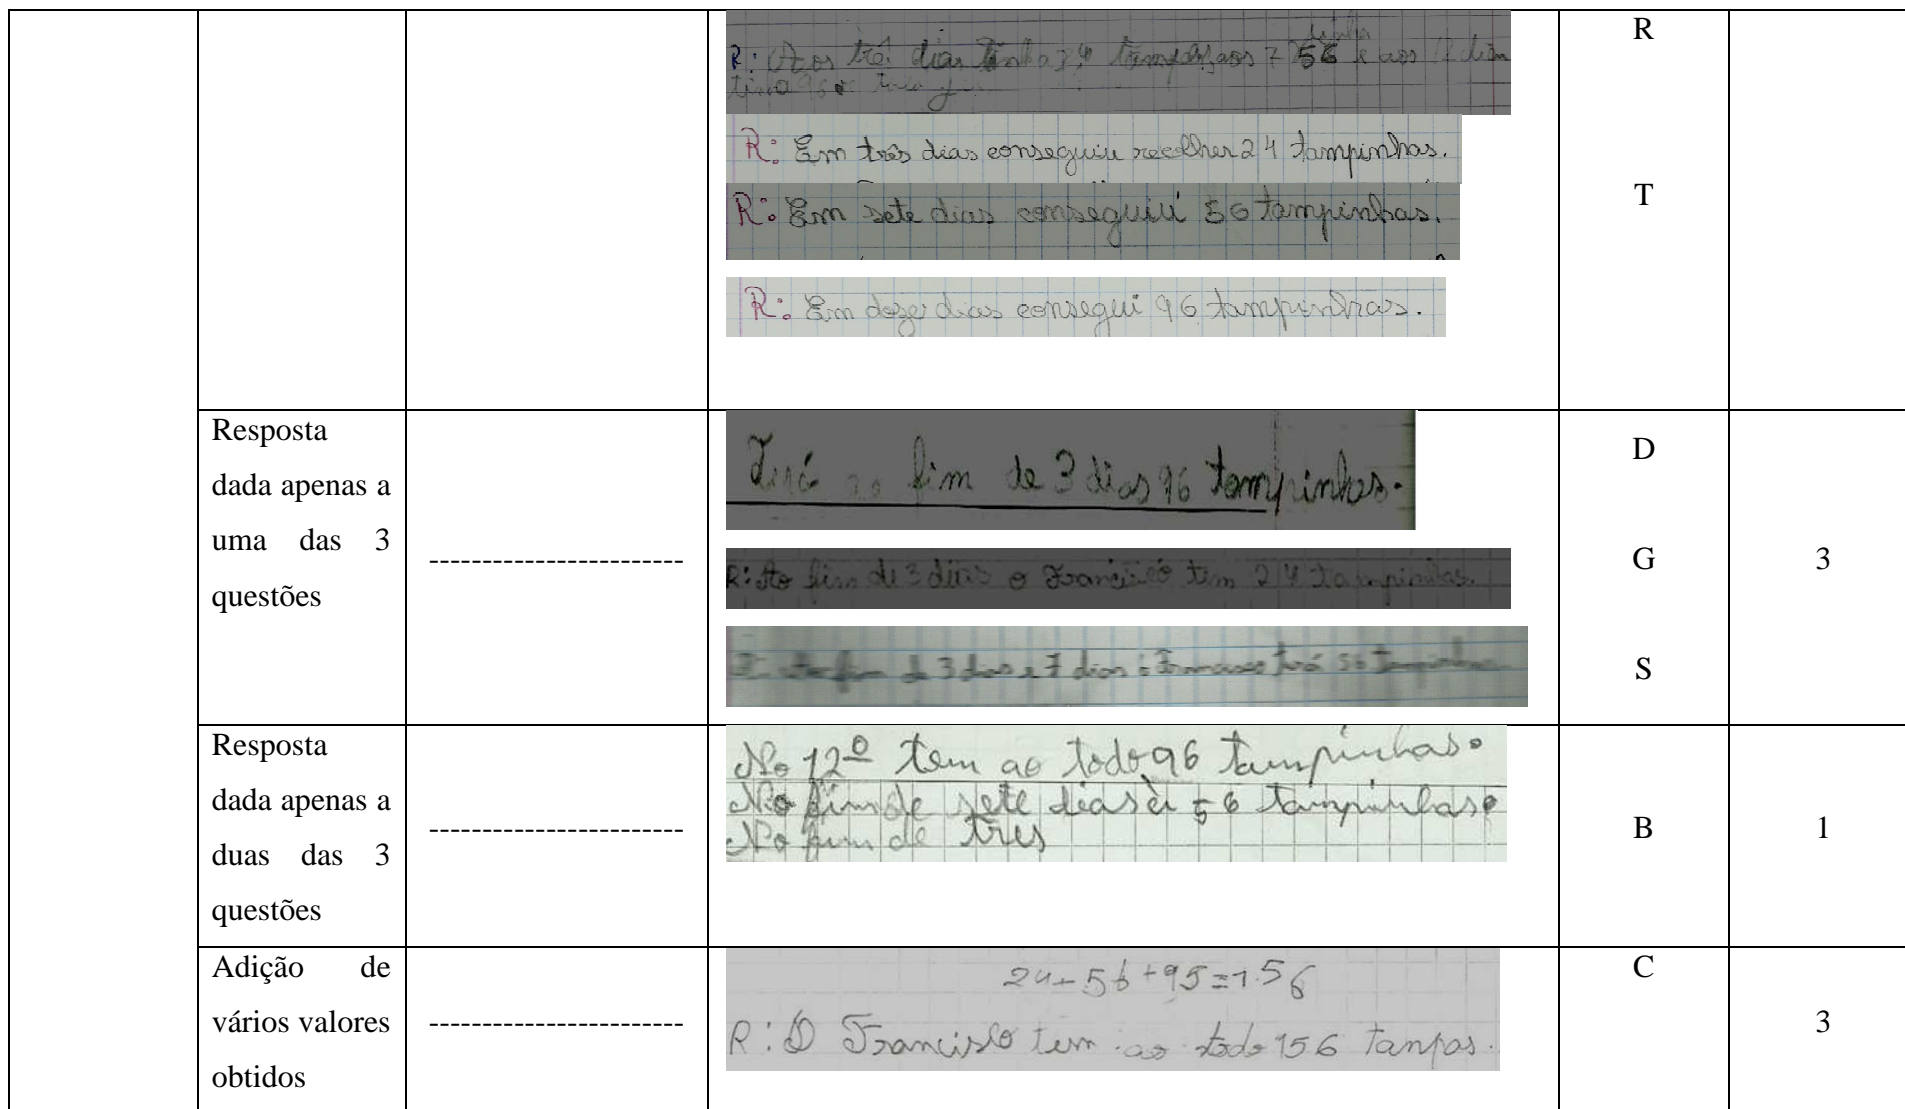 R: Aos três dias tinha 24 tampas aos 7 56 e aos 12 dias
tinha
tinha 96
R
R: Em três dias conseguiu recolher 24 tampinhas.
R: Em sete dias conseguiu 56 tampinhas.
T
R: Em doze dias consegui 96 tampinhas.
Resposta dada apenas a uma das 3 questões
------------------------
Terá ao fim de 3 dias 96 tampinhas.
D
R: Ao fim de 3 dias o Francisco tem 24 tampinhas.
G
3
fim de 3 dias e 7 dias o Francisco terá 56 tampinhas
S
Resposta dada apenas a duas das 3 questões
------------------------
No 12º tem ao todo 96 tampinhas.
No fim de sete dias é 56 tampinhas.
No fim de tres
B
1
Adição de vários valores obtidos
------------------------
24+56+95=156
R: O Francisco tem ao todo 156 tanpas.
C
3